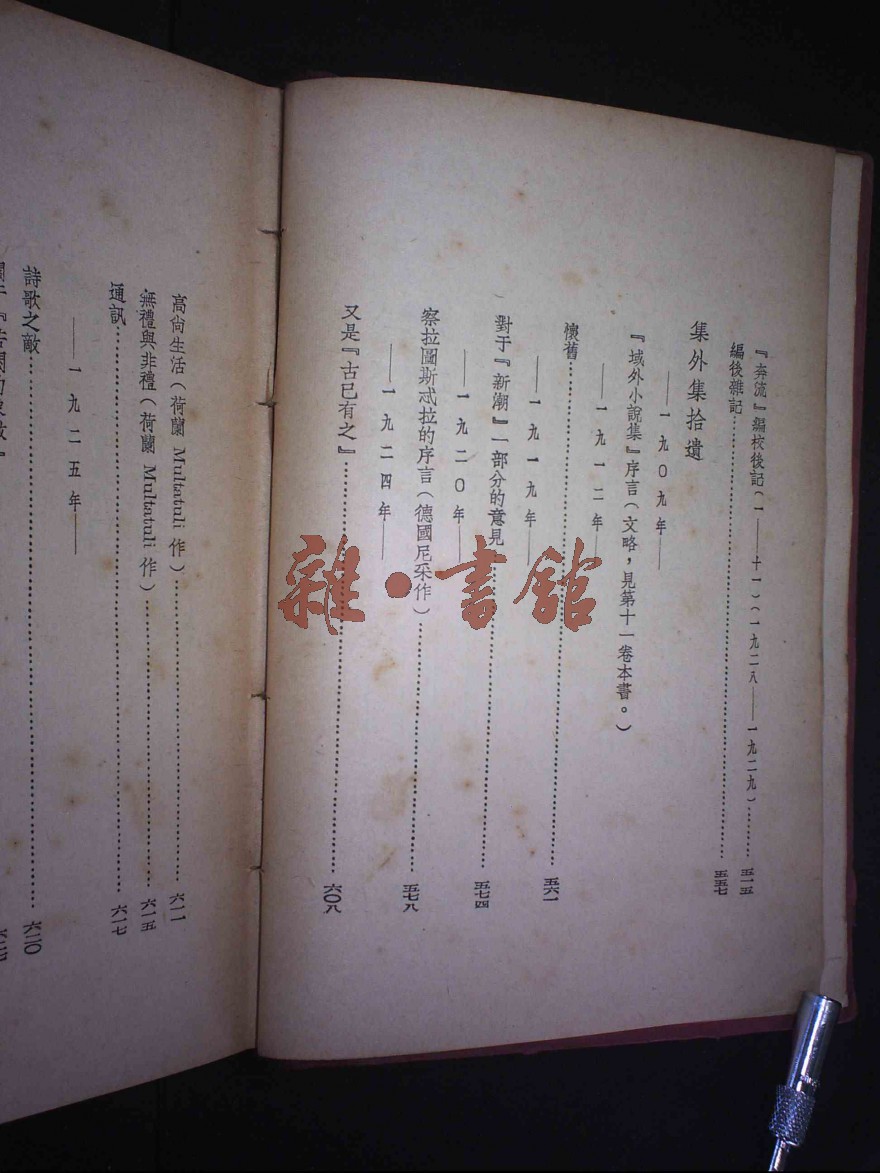 『奔流』編校後記(一——十一)(一九二八——一九二九)………五一五
編後雜記………五五七
集外集拾遺
——一九〇九年——
『域外小說集』序言(文略，見第十一卷本書。)
——一九一二年——
懷舊………五六一
——一九一九年——
對于『新潮』一部分的意見………五七四
——一九二〇年——
察拉圖斯忒拉的序言(德國尼采作)………五七八
——一九二四年——
又是『古已有之』………六〇八
高尚生活(荷蘭 Multatuli 作)………六一一
無禮與非禮(荷蘭 Multatuli 作)………六一五
通訊………六一七
——一九二五年——
詩歌之敵………六二〇
雜·書館